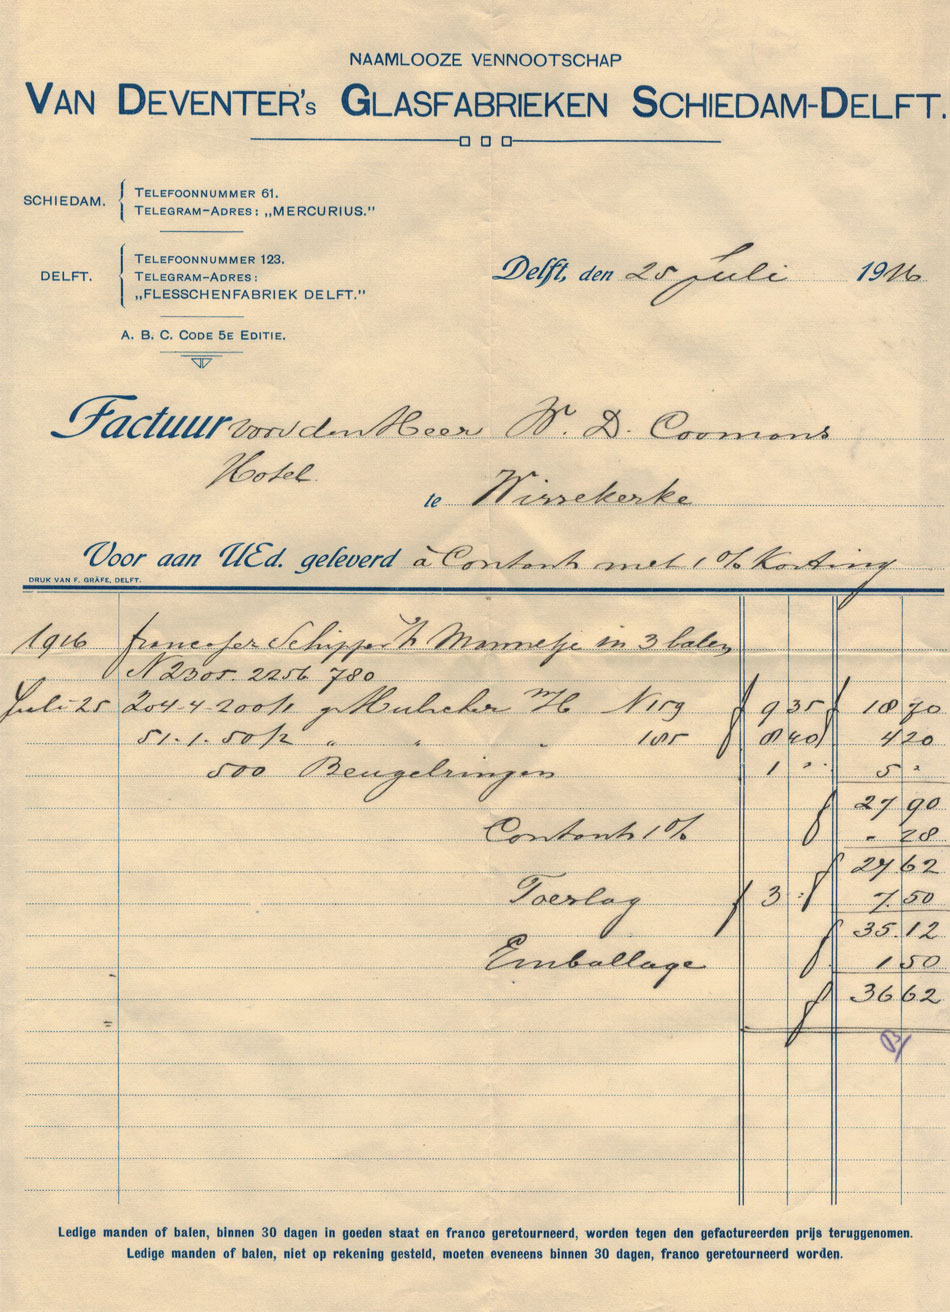 NAAMLOOZE VENNOOTSCHAP
VAN DEVENTER'S GLASFABRIEKEN SCHIEDAM-DELFT.
SCHIEDAM.
TELEFOONNUMMER 61.
TELEGRAM-ADRES: „MERCURIUS."
DELFT.
TELEFOONNUMMER 123.
TELEGRAM-ADRES:
„FLESSCHENFABRIEK DELFT."
A. B. C. CODE 5E EDITIE.
Delft, den 25 Juli 1916
Factuur voor den Heer W. D. Coomans
Hotel
te Wissekerke
Voor aan UEd. geleverd à Contant met 1 % Korting
DRUK VAN F. GRÄFE, DELFT.
1916 franco per Schipper Mannetje in 3 balen
N 2305. 2256 780
Juli 25 204-4-200/1 N 159 f 9 35 f 18 70
51-1-50/2 " " " 185 8 40 4 20
500 Beugelringen 1 " 5 "
f 27 90
Contant 1 % - 28
f 27.62
Toeslag f 3 f 7.50
f 35.12
Emballage 1 50
f 36 62
Ledige manden of balen, binnen 30 dagen in goeden staat en franco geretourneerd, worden tegen den gefactureerden prijs teruggenomen.
Ledige manden of balen, niet op rekening gesteld, moeten eveneens binnen 30 dagen, franco geretourneerd worden.